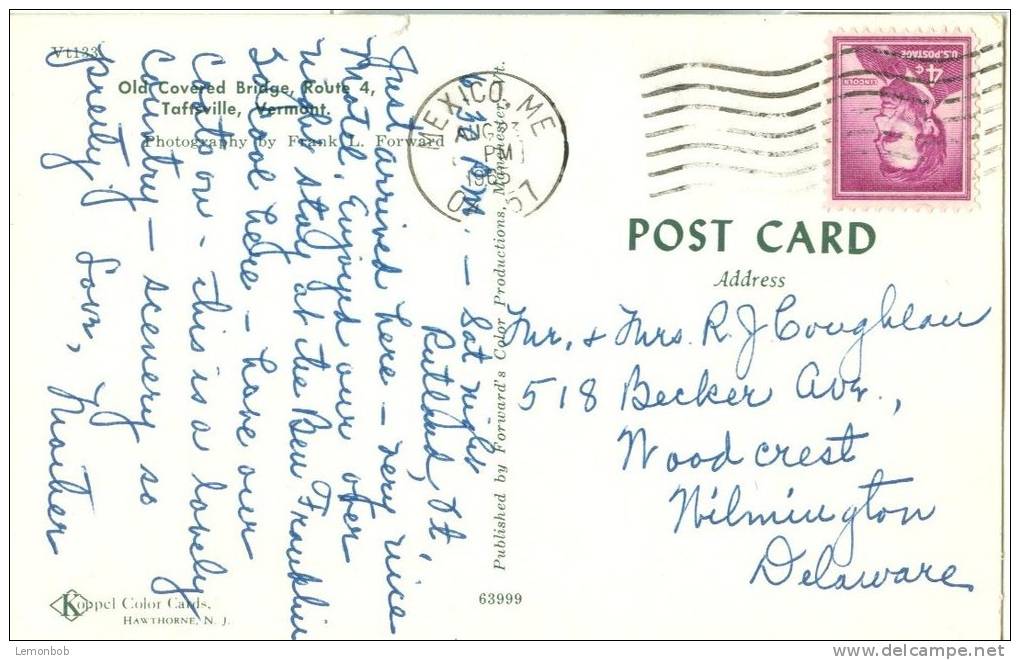 Vt133
Old Covered Bridge, Route 4,
Taftsville, Vermont.
Photography by Frank L. Forward
6:30 P.M. — Sat night
Rutland, Vt.
Just arrived here — very nice
Motel. Enjoyed our over
night stay at the Ben Franklin
Motel here — have our
Cartoon - this is a lovely
country — scenery so
pretty.
Love, Mother
Published by Forward's Color Productions, Manchester, Vt.
Koppel Color Cards,
HAWTHORNE, N. J.
63999
MEXICO, ME
AUG
PM
U.S. POSTAGE
4¢
LINCOLN
POST CARD
Address
Mr. & Mrs. R. J. Coughlan
518 Becker Ave.,
Woodcrest
Wilmington
Delaware
Lemonbob
www.delcampe.net